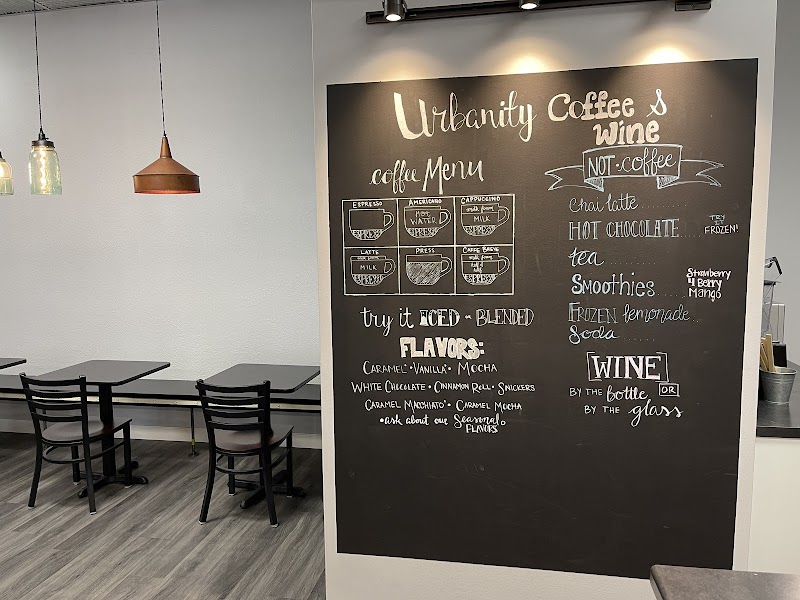 Urbanity Coffee &
Wine
coffee Menu
ESPRESSO
AMERICANO
CAPPUCCINO
HOT WATER
ESPRESSO
milk foam
MILK
ESPRESSO
LATTE
PRESS
CAFFE BREVE
milk foam
MILK
ESPRESSO
milk foam
half & half
ESPRESSO
try it ICED or BLENDED
FLAVORS:
CARAMEL • VANILLA • MOCHA
WHITE CHOCOLATE • CINNAMON ROLL • SNICKERS
CARAMEL MACCHIATO • CARAMEL MOCHA
• ask about our Seasonal
FLAVORS
NOT • coffee
Chai latte
HOT CHOCOLATE
TRY IT FROZEN!
tea
Smoothies
Strawberry
4 Berry
Mango
FROZEN lemonade
Soda
WINE
BY THE bottle OR
BY THE glass